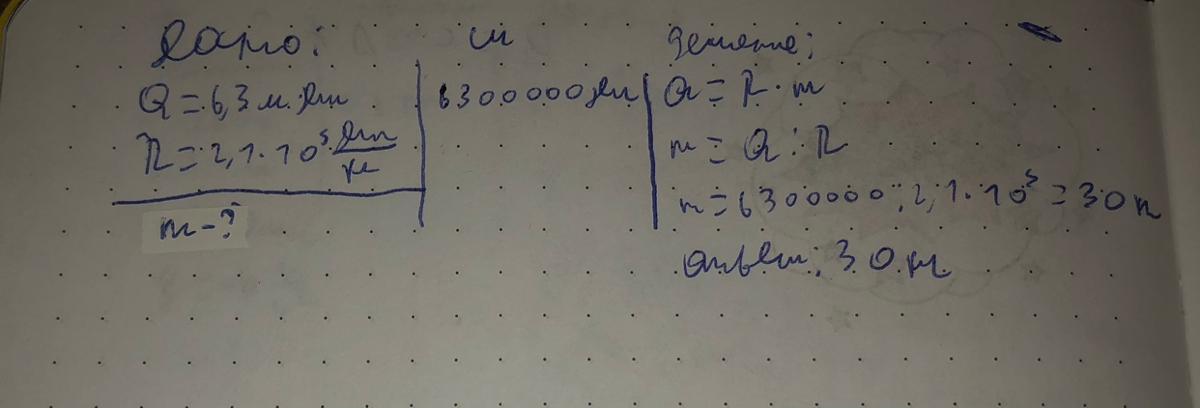 Дано:
Q = 6,3 м. Дж
λ = 2,1 · 10⁵ Дж/кг
m - ?
си
6300000 Дж
решение:
Q = λ · m
m = Q : λ
m = 6300000 : 2,1 · 10⁵ = 30 кг
ответ: 30 кг